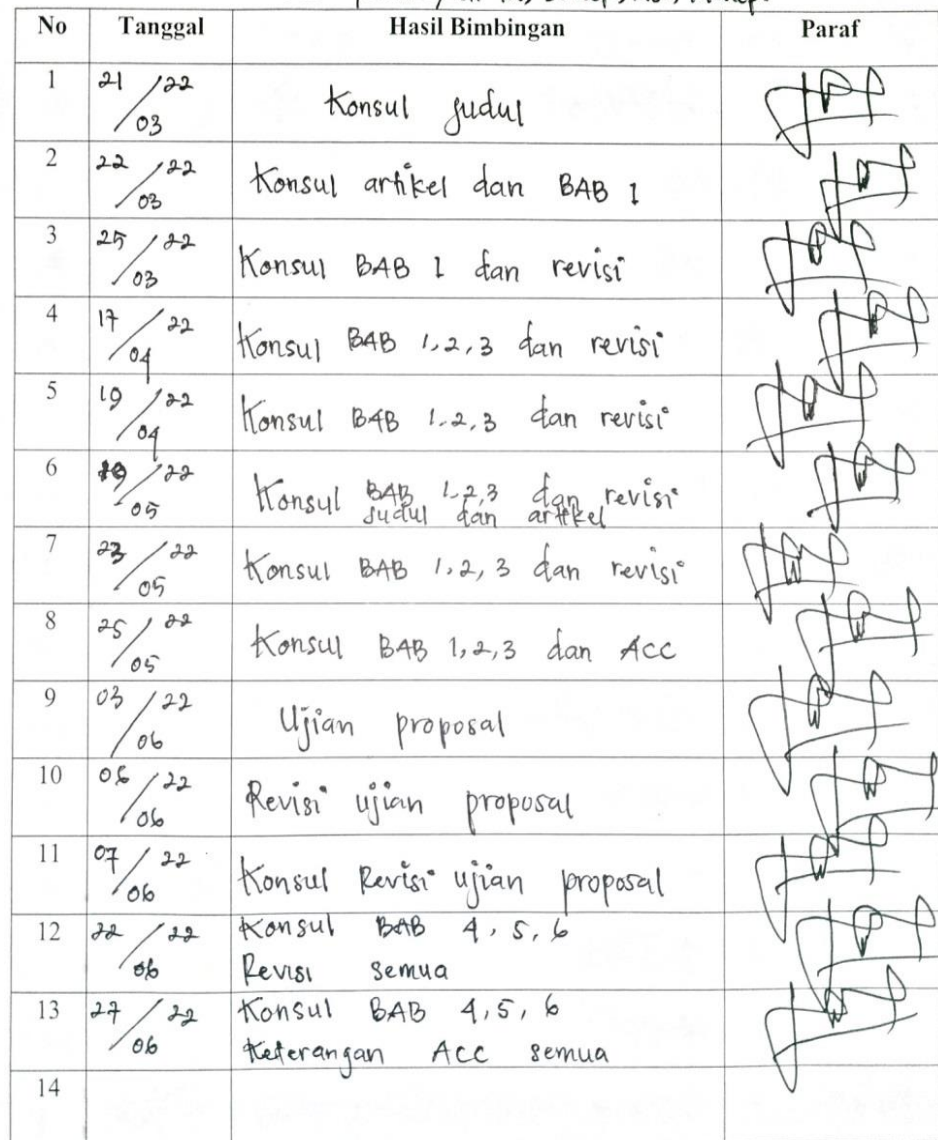 No Tanggal Hasil Bimbingan Paraf
1 21/22 03 Konsul judul
2 22/22 03 Konsul artikel dan BAB 1
3 25/22 03 Konsul BAB 1 dan revisi
4 17/22 04 Konsul BAB 1,2,3 dan revisi
5 19/22 04 Konsul BAB 1,2,3 dan revisi
6 /22 05 Konsul BAB 1,2,3 dan revisi
judul dan artikel
7 23/22 05 Konsul BAB 1,2,3 dan revisi
8 25/22 05 Konsul BAB 1,2,3 dan ACC
9 03/22 06 Ujian proposal
10 /22 06 Revisi ujian proposal
11 07/22 06 Konsul Revisi ujian proposal
12 22/22 06 Konsul BAB 4,5,6
Revisi semua
13 27/22 06 Konsul BAB 4,5,6
Keterangan ACC semua
14